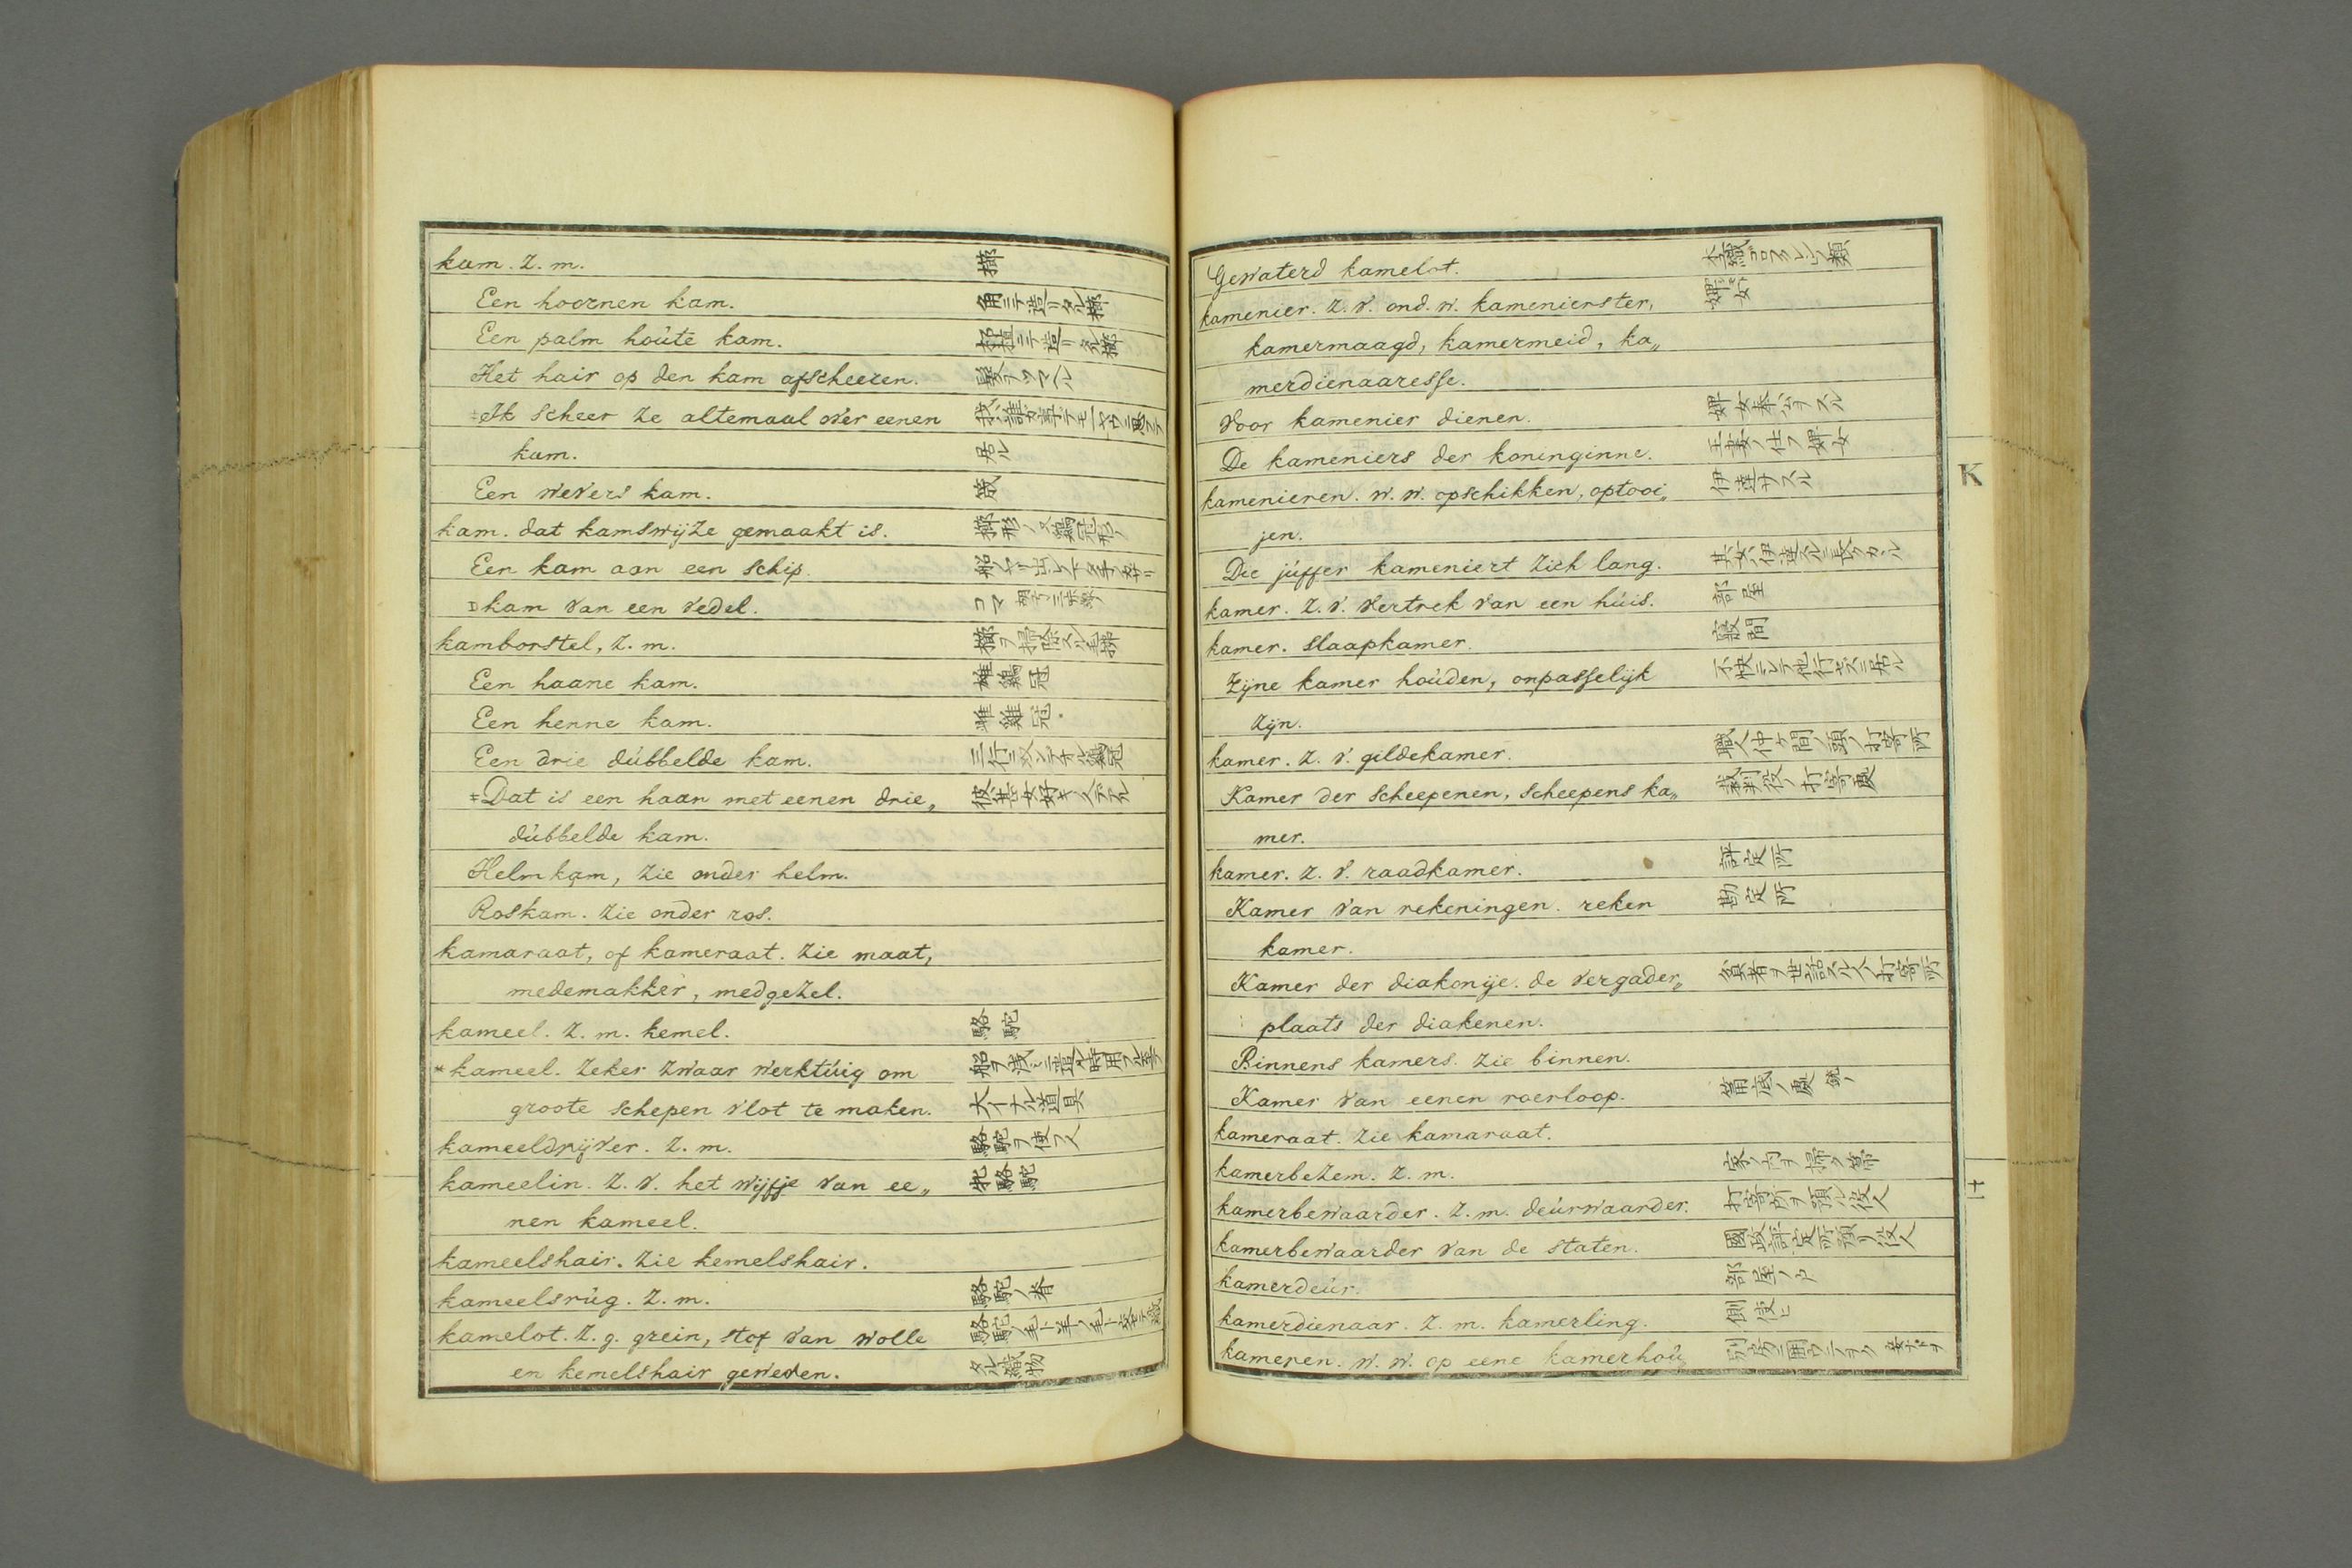 kam. z. m. 櫛
Een hoornen kam. 角ニテ造リタル櫛
Een palm hoúte kam. ニテ造リタル櫛
Het hair op den kam afscheeren. 髪ヲツマヘル
‡Ik scheer ze altemaal over eenen
kam. 居ル
Een wevers kam. 筬
kam. dat kamswijze gemaakt is. 櫛形ノ又鶏冠形ノ
Een kam aan een schip.
kam van een vedel. コマ
kamborstel, z. m. 櫛ヲ掃除スル毛拂
Een haane kam. 雄鶏冠
Een henne kam. 雌雞冠
Een drie dúbbelde kam.
‡Dat is een haan met eenen drie„
dúbbelde kam.
Helm kam, zie onder helm.
Roskam. zie onder ros.
kamaraat, of kameraat. zie maat,
medemakker, medgezel.
kameel. z. m. kemel. 駱駝
*kameel. zeker zwaar werktúig om
groote schepen vlot te maken. 大イナル道具
kameeldrijver. z. m. 駱駝ヲ使フ人
kameelin. z. v. het wijfje van ee„ 牝駱駝
nen kameel.
kameelshair. zie kemelshair.
kameelsrúg. z. m. 駱駝ノ脊
kamelot. z. g. grein, stof van wolle 駱駝ノ毛ト羊ノ毛ト交セテ織
en kemelshair geweven. タル織物
Gewaterd kamelot.
kamenier. z. v. ond. w. kamenierster, 婢女
kamermaagd, kamermeid, ka„
merdienaaresse.
Voor kamenier dienen. 婢女奉公ヲスル
De kameniers der koninginne. 王妻ノ仕フ婢女
kamenieren. w. w. opschikken, optooi„ 伊達ヲスル
jen.
Die júffer kameniert zich lang.
kamer. z. v. vertrek van een húis. 部屋
kamer. slaapkamer. 寢間
Zijne kamer hoúden, onpasselijk 不快ニシテ他行セズニ居ル
zijn.
kamer. z. v. gildekamer. 職人仲ケ間ノ頭ノ打寄所
Kamer der scheepenen, scheepens ka„ 裁判役ノ打寄處
mer.
kamer. z. v. raadkamer. 評定所
Kamer van rekeningen. reken 勘定所
kamer.
Kamer der diakonije. de vergader„ 貧者ヲ世話スル人ノ打寄所
plaats der diakenen.
Binnens kamers. zie binnen.
Kamer van eenen roerloop.
kameraat. zie kamaraat.
kamerbezem. z. m. 家ノ内ヲ掃ク箒
kamerbewaarder. z. m. deúrwaarder. 打寄所ヲ預ル役人
kamerbewaarder van de staten. 國政評定所預リ役人
kamerdeúr. 部屋ノ戸
kamerdienaar. z. m. kamerling. 側使ヒ
kameren. w. w. op eene kamer hoú„
K